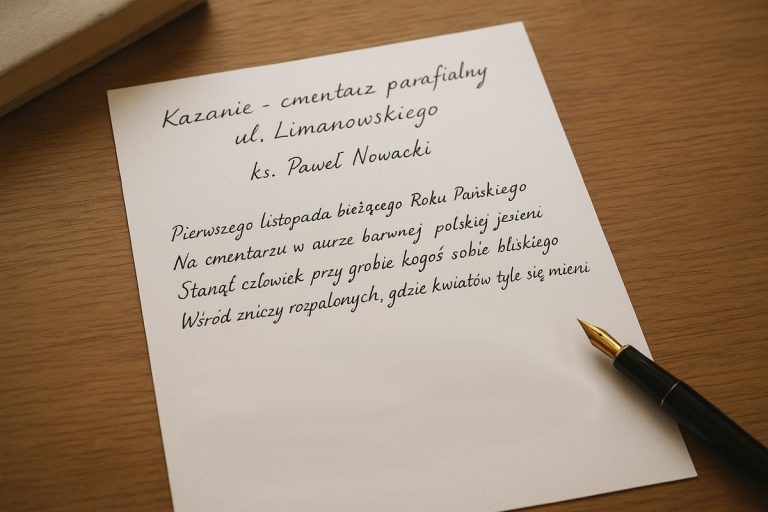 Kazanie - cmentarz parafialny
ul. Limanowskiego
ks. Paweł Nowacki
Pierwszego listopada bieżącego Roku Pańskiego
Na cmentarzu w aurze barwnej polskiej jesieni
Stanął człowiek przy grobie kogoś sobie bliskiego
Wśród zniczy rozpalonych, gdzie kwiatów tyle się mieni